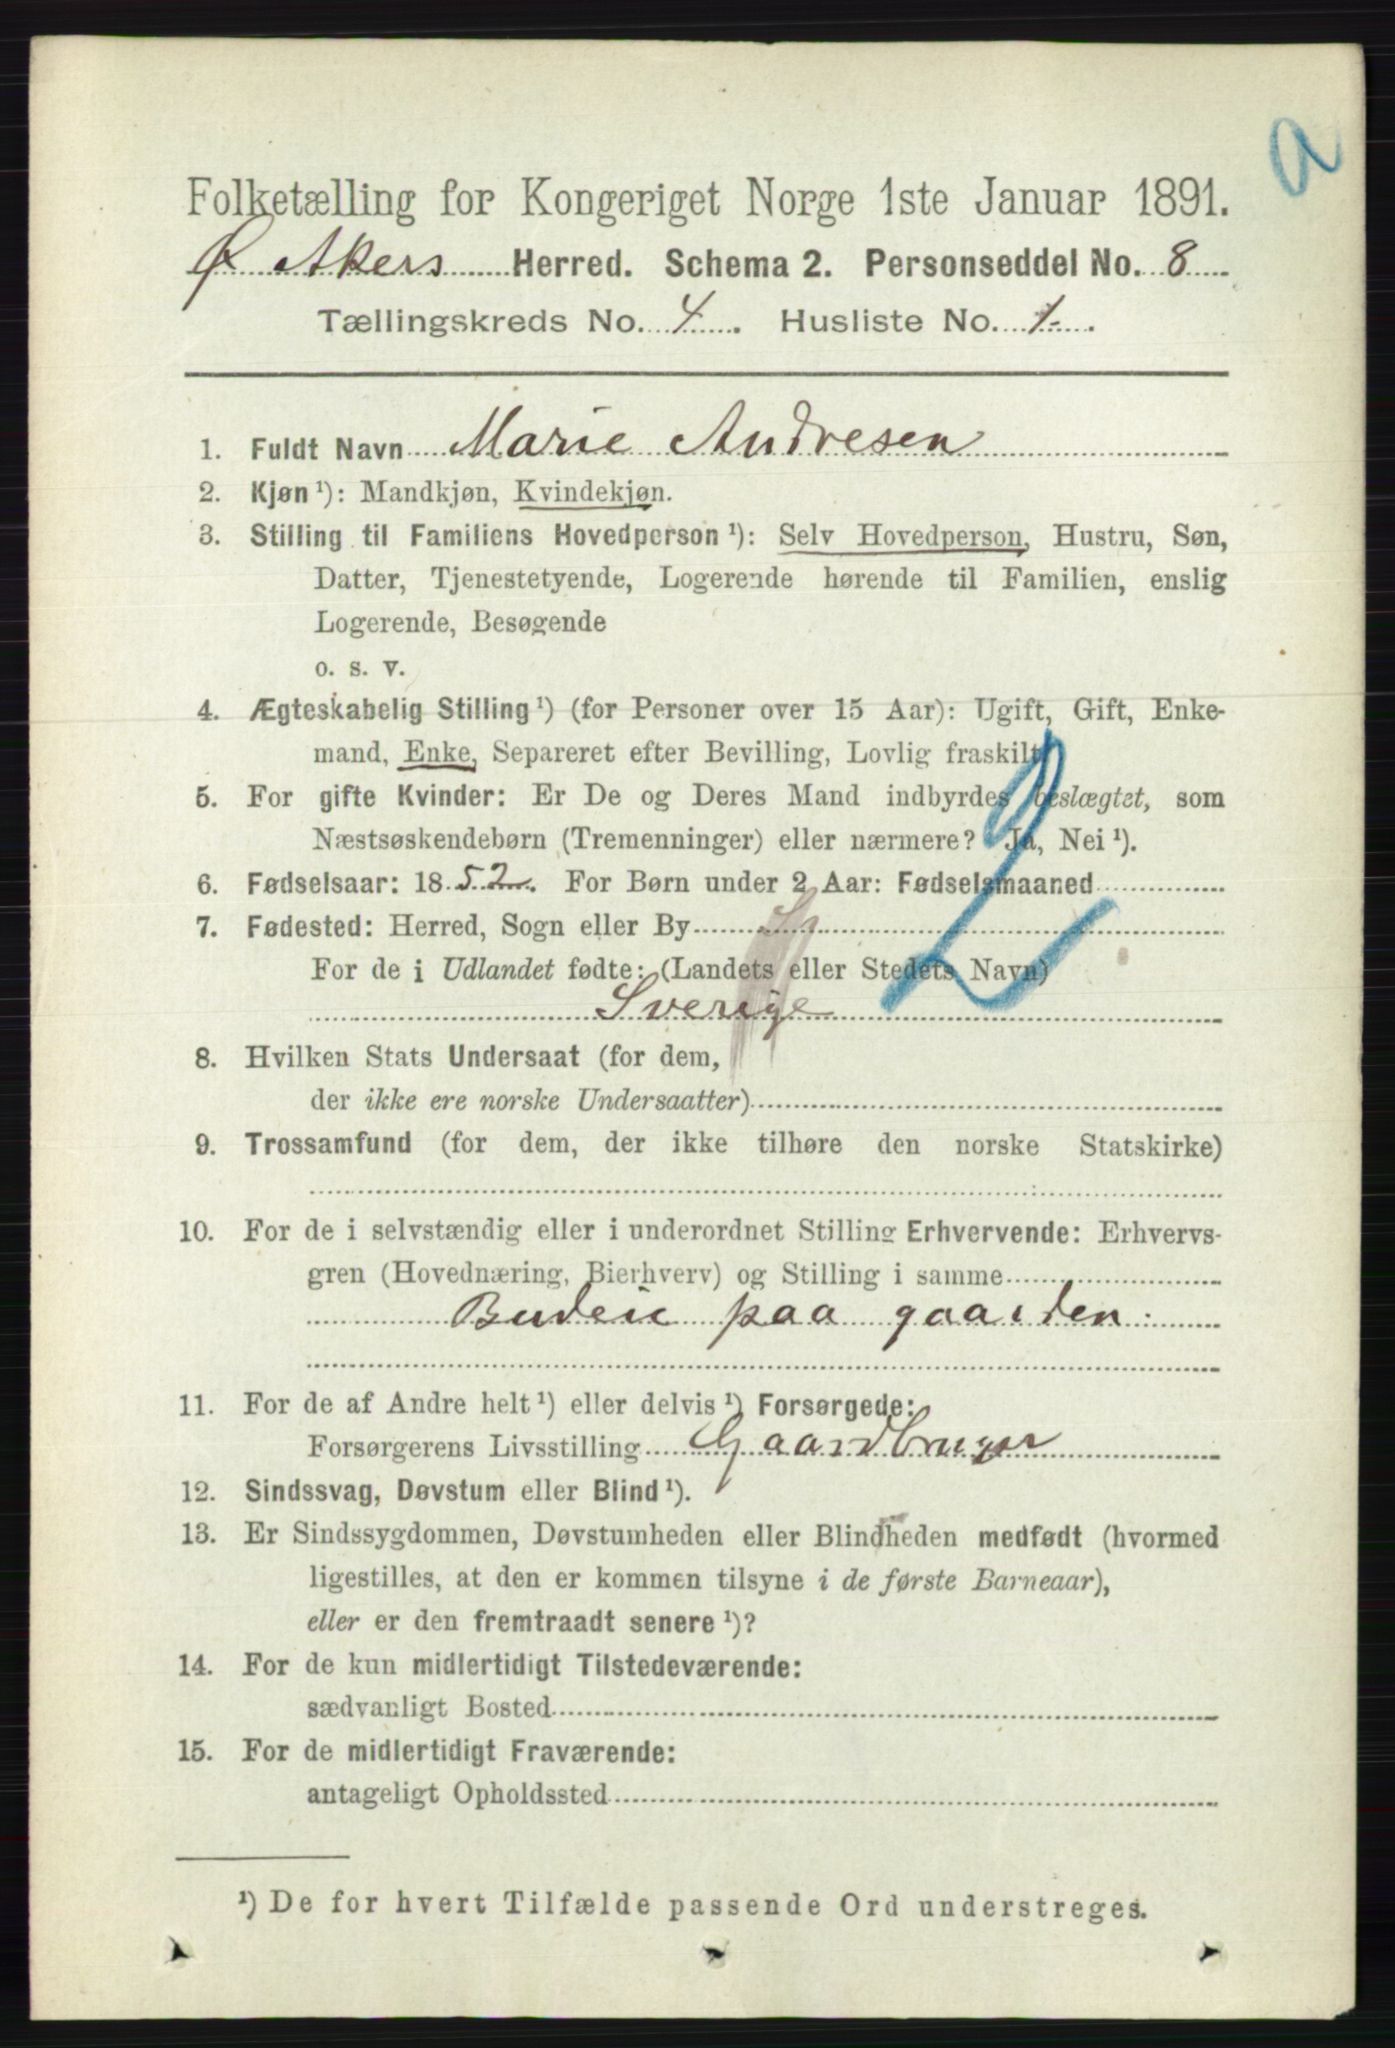 a
Folketælling for Kongeriget Norge 1ste Januar 1891.
Ø Akers Herred. Schema 2. Personseddel No. 8
Tællingskreds No. 4. Husliste No. 1.
1. Fuldt Navn Marie Andresen
2. Kjøn ¹): Mandkjøn, Kvindekjøn.
3. Stilling til Familiens Hovedperson ¹): Selv Hovedperson, Hustru, Søn,
Datter, Tjenestetyende, Logerende hørende til Familien, enslig
Logerende, Besøgende
o. s. v.
4. Ægteskabelig Stilling ¹) (for Personer over 15 Aar): Ugift, Gift, Enke-
mand, Enke, Separeret efter Bevilling, Lovlig fraskilt.
5. For gifte Kvinder: Er De og Deres Mand indbyrdes beslægtet, som
Næstsøskendebørn (Tremenninger) eller nærmere? Ja, Nei ¹).
6. Fødselsaar: 1852. For Børn under 2 Aar: Fødselsmaaned
7. Fødested: Herred, Sogn eller By
For de i Udlandet fødte: (Landets eller Stedets Navn)
Sverige
8. Hvilken Stats Undersaat (for dem,
der ikke ere norske Undersaatter)
9. Trossamfund (for dem, der ikke tilhøre den norske Statskirke)
10. For de i selvstændig eller i underordnet Stilling Erhvervende: Erhvervs-
gren (Hovednæring, Bierhverv) og Stilling i samme
Budeie paa gaarden.
11. For de af Andre helt ¹) eller delvis ¹) Forsørgede:
Forsørgerens Livsstilling Gaardbruger
12. Sindssvag, Døvstum eller Blind ¹).
13. Er Sindssygdommen, Døvstumheden eller Blindheden medfødt (hvormed
ligestilles, at den er kommen tilsyne i de første Barneaar),
eller er den fremtraadt senere ¹)?
14. For de kun midlertidigt Tilstedeværende:
sædvanligt Bosted
15. For de midlertidigt Fraværende:
antageligt Opholdssted
¹) De for hvert Tilfælde passende Ord understreges.